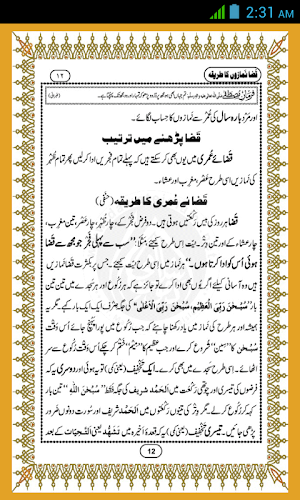 2:31 AM
قضا نمازوں کا طریقہ
۱۲
اور مَرد بارہ سال کی عمر سے نَمازوں کا حساب لگائے۔
قَضا پڑھنے میں ترتیب
قَضائے عُمری میں یوں بھی کر سکتے ہیں کہ پہلے تمام فَجریں ادا کر لیں پھر تمام ظُہر
کی نمازیں اسی طرح عَصر، مغرِب اور عشاء۔
قَضائے عُمری کا طریقہ (حنفی)
قَضا ہر روز کی بیس رَکعتیں ہوتی ہیں۔ دو فرض فَجر کے، چار ظہر، چار عَصر، تین مغرب،
چار عشاء کے اور تین وِتر۔ نیّت اِس طرح کیجئے، مَثَلاً: ”سب سے پہلی فَجر جو مجھ سے قضا
ہوئی اُس کو ادا کرتا ہوں۔“ ہر نماز میں اِسی طرح نیّت کیجئے۔ جس پر بکثرت قضا نمازیں
ہیں وہ آسانی کیلئے اگر یوں بھی ادا کرے تو جائز ہے کہ ہر رُکوع اور ہر سجدے میں تین تین
بار سُبْحٰنَ رَبِّیَ الْعَظِیْم، سُبْحٰنَ رَبِّیَ الْاَعْلٰی کی جگہ صرف ایک ایک بار کہے۔ مگر یہ
ہمیشہ اور ہر طرح کی نماز میں یاد رکھنا چاہئے کہ جب رُکوع میں پورا پہنچ جائے اُس وقت
سُبْحٰن کا ”سین“ شروع کرے اور جب عظیم کا ”میم“ ختم کر چکے اُس وقت رُکوع سے سر
اٹھائے۔ اِسی طرح سجدے میں بھی کرے۔ ایک تخفیف (یعنی کمی) تو یہ ہوئی اور دوسری یہ کہ
فرضوں کی تیسری اور چوتھی رَکعت میں اَلْحَمْد شریف کی جگہ فقط ”سُبْحٰنَ اللہ“ تین بار
کہہ کر رُکوع کر لے۔ مگر وِتر کی تینوں رَکعتوں میں اَلْحَمْد شریف اور سُورت دونوں ضرور
پڑھی جائیں۔ تیسری تخفیف (یعنی کمی) یہ کہ قعدۂ اَخیرہ میں تَشَہُّد یعنی اَلتَّحِیّات کے بعد
12